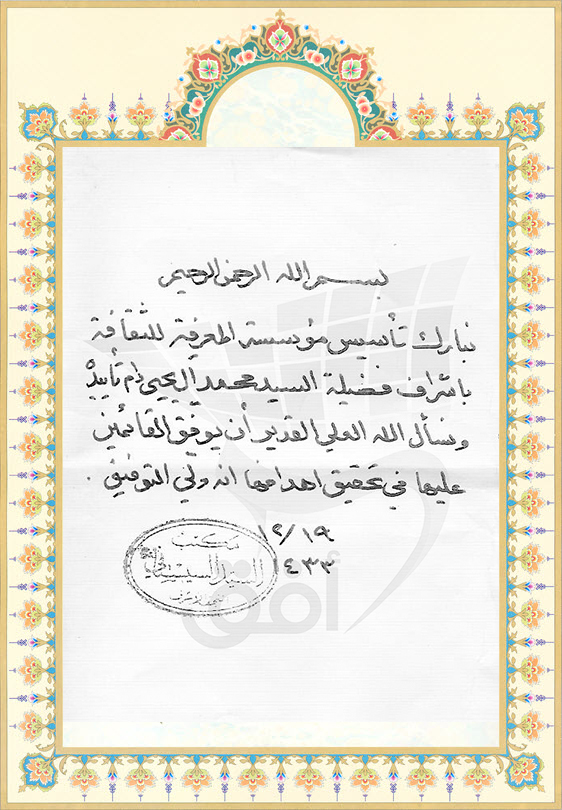 بسم الله الرحمن الرحيم
نبارك تأسيس مؤسسة المعرفة للثقافة
باشراف فضيلة السيد محمد اليحيى دام تأييده
ونسأل الله العلي القدير أن يوفق القائمين
عليها في تحقيق اهدافها انه ولي التوفيق .
١٢/١٩
١٤٣٣
مكتب
السيد السيستاني
النجف الاشرف
أفق